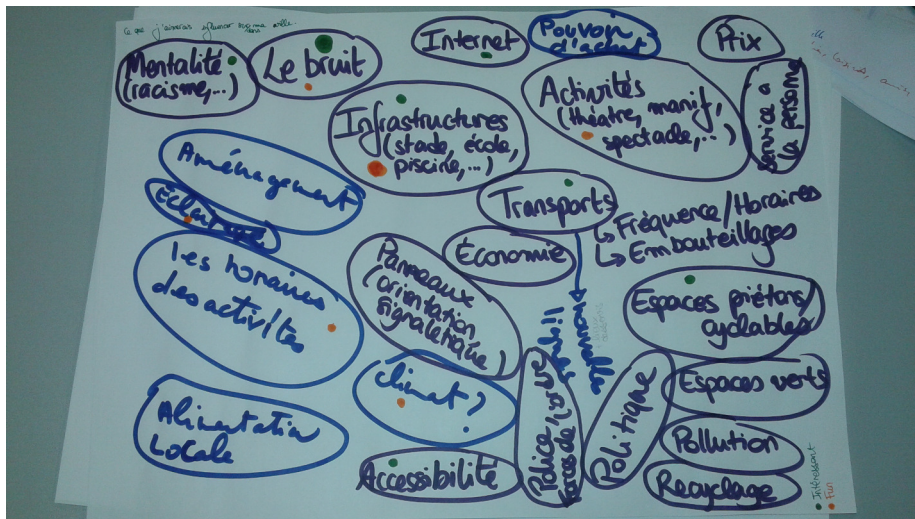 Ce que j'aimerais dans ma ville
Mentalité
(racisme,...)
Le bruit
Internet
Pouvoir
d'achat
Prix
Infrastructures
(stade, école,
piscine,...)
Activités
(théâtre, manif,
spectacle,...)
Service à
la personne
Aménagement
Éclairage
Transports
↳ Fréquence/Horaires
↳ Embouteillages
Économie
les horaires
des activités
Panneaux
(orientation
signalétique)
Espaces piétons/
cyclables
climat?
Espaces verts
Alimentation
Locale
Accessibilité
Police
forces de
Politique
Pollution
Recyclage
Intéressant
Fun